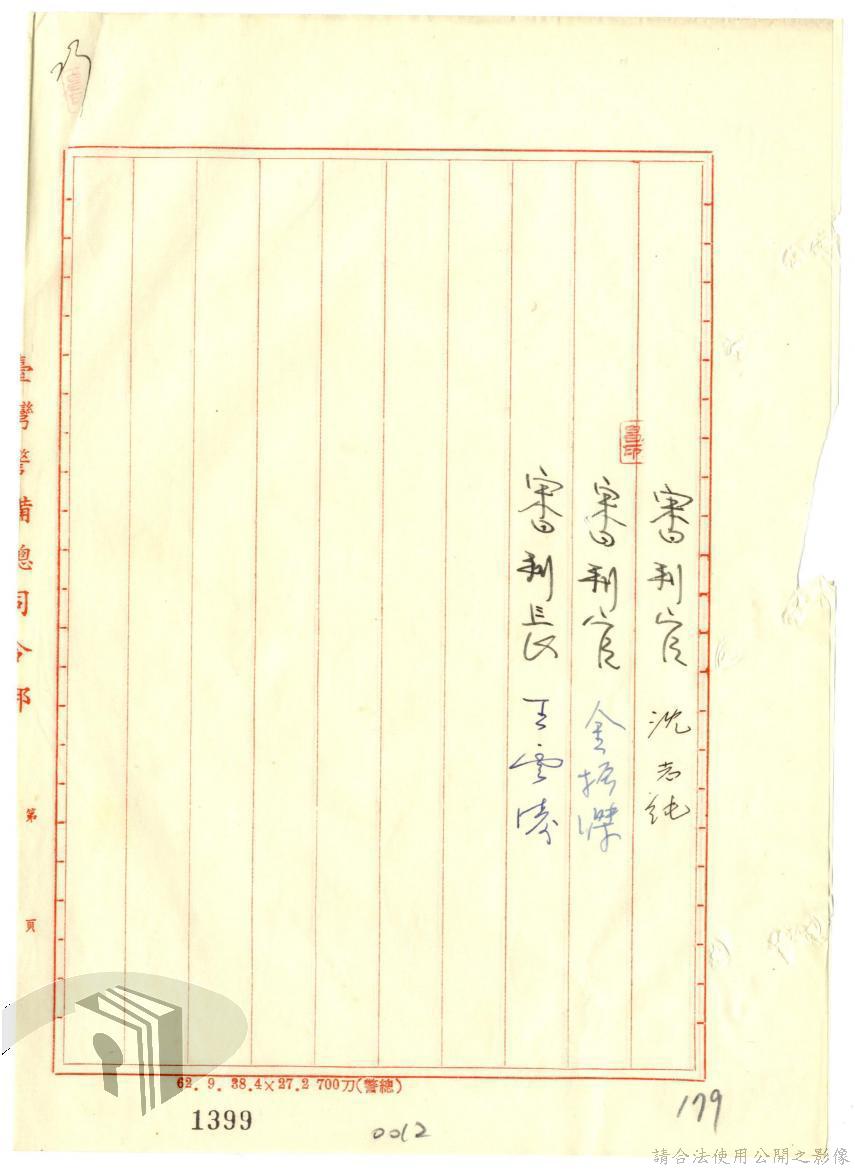 審判官 沈志純
審判官 金振傑
審判長 王雲濤
臺灣警備總司令部
第 頁
62. 9. 38.4×27.2 700刀(警總)
1399
0012
179
請合法使用公開之影像